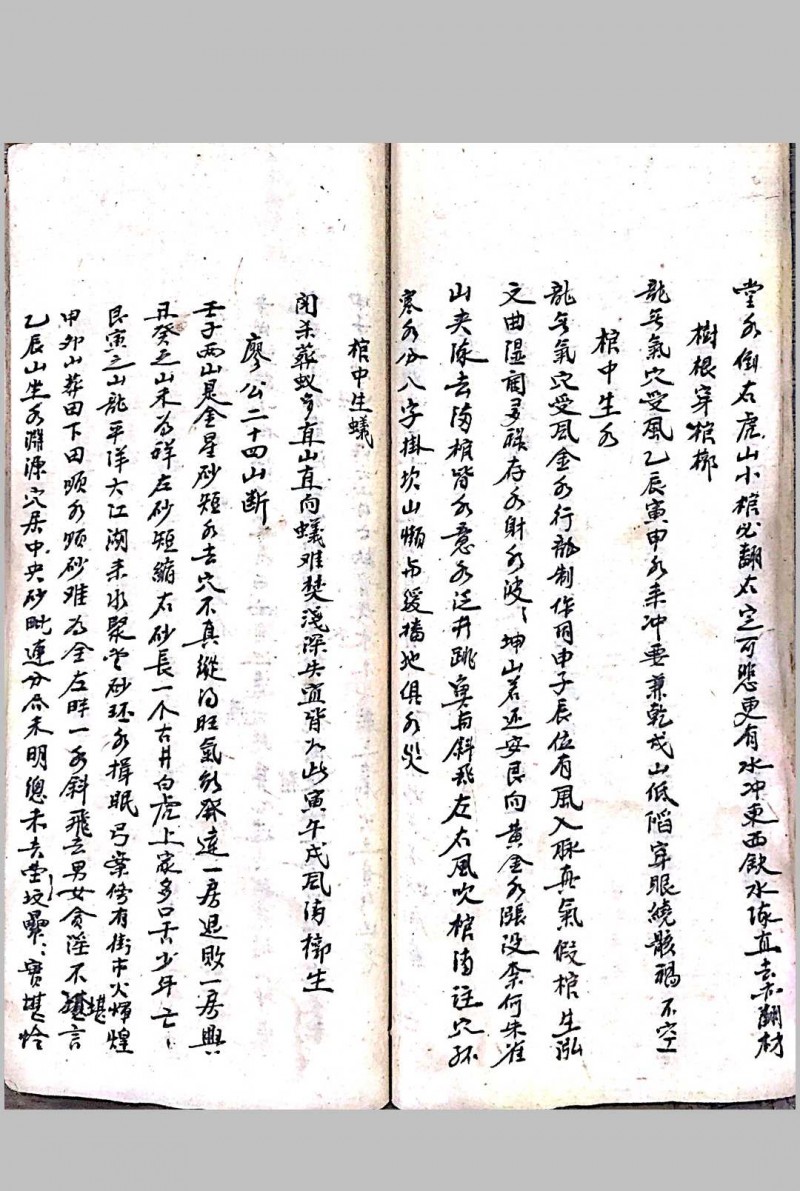 堂水倒右虎山小棺必翻右定可悲更有水冲東西欽水隊直去亦翻材
樹根穿棺槨
龍無氣穴受風乙辰寅申水来冲要兼乾戌山低陷穿眼繞骸禍不空
棺中生水
龍無氣穴受風金水行龍制作用申子辰位有風入脉真氣假棺生泓
文曲湿蘭多禄存水射水波〻坤山若还安艮向黄金水漲没奈何朱雀
山夹隊去滿棺皆水意水泛井跳窠与斜飛左右風吹棺滿注穴环
寒水分八字掛坎山懶与緩擋地俱水災
棺中生蟻
閉杀葬蚁多直山直向蟻难焚浅深失宜皆如此寅午戌風滿槨生
廖公二十四山断
壬子两山是金星砂短水去穴不真縱得旺氣能發達一房退敗一房興
丑癸之山未為祥左砂短縮右砂長一个古井白虎上家多口舌少年亡〻
艮寅之山龍平洋大江湖来水聚堂砂环水揖眠弓案傍有街市火煒煌
甲卯山葬田下田順水順砂难為全左畔一水斜飛去男女貪淫不堪言
乙辰山坐水淵源穴居中央砂毗連分合未明總未吉堂坟纍〻實堪怜